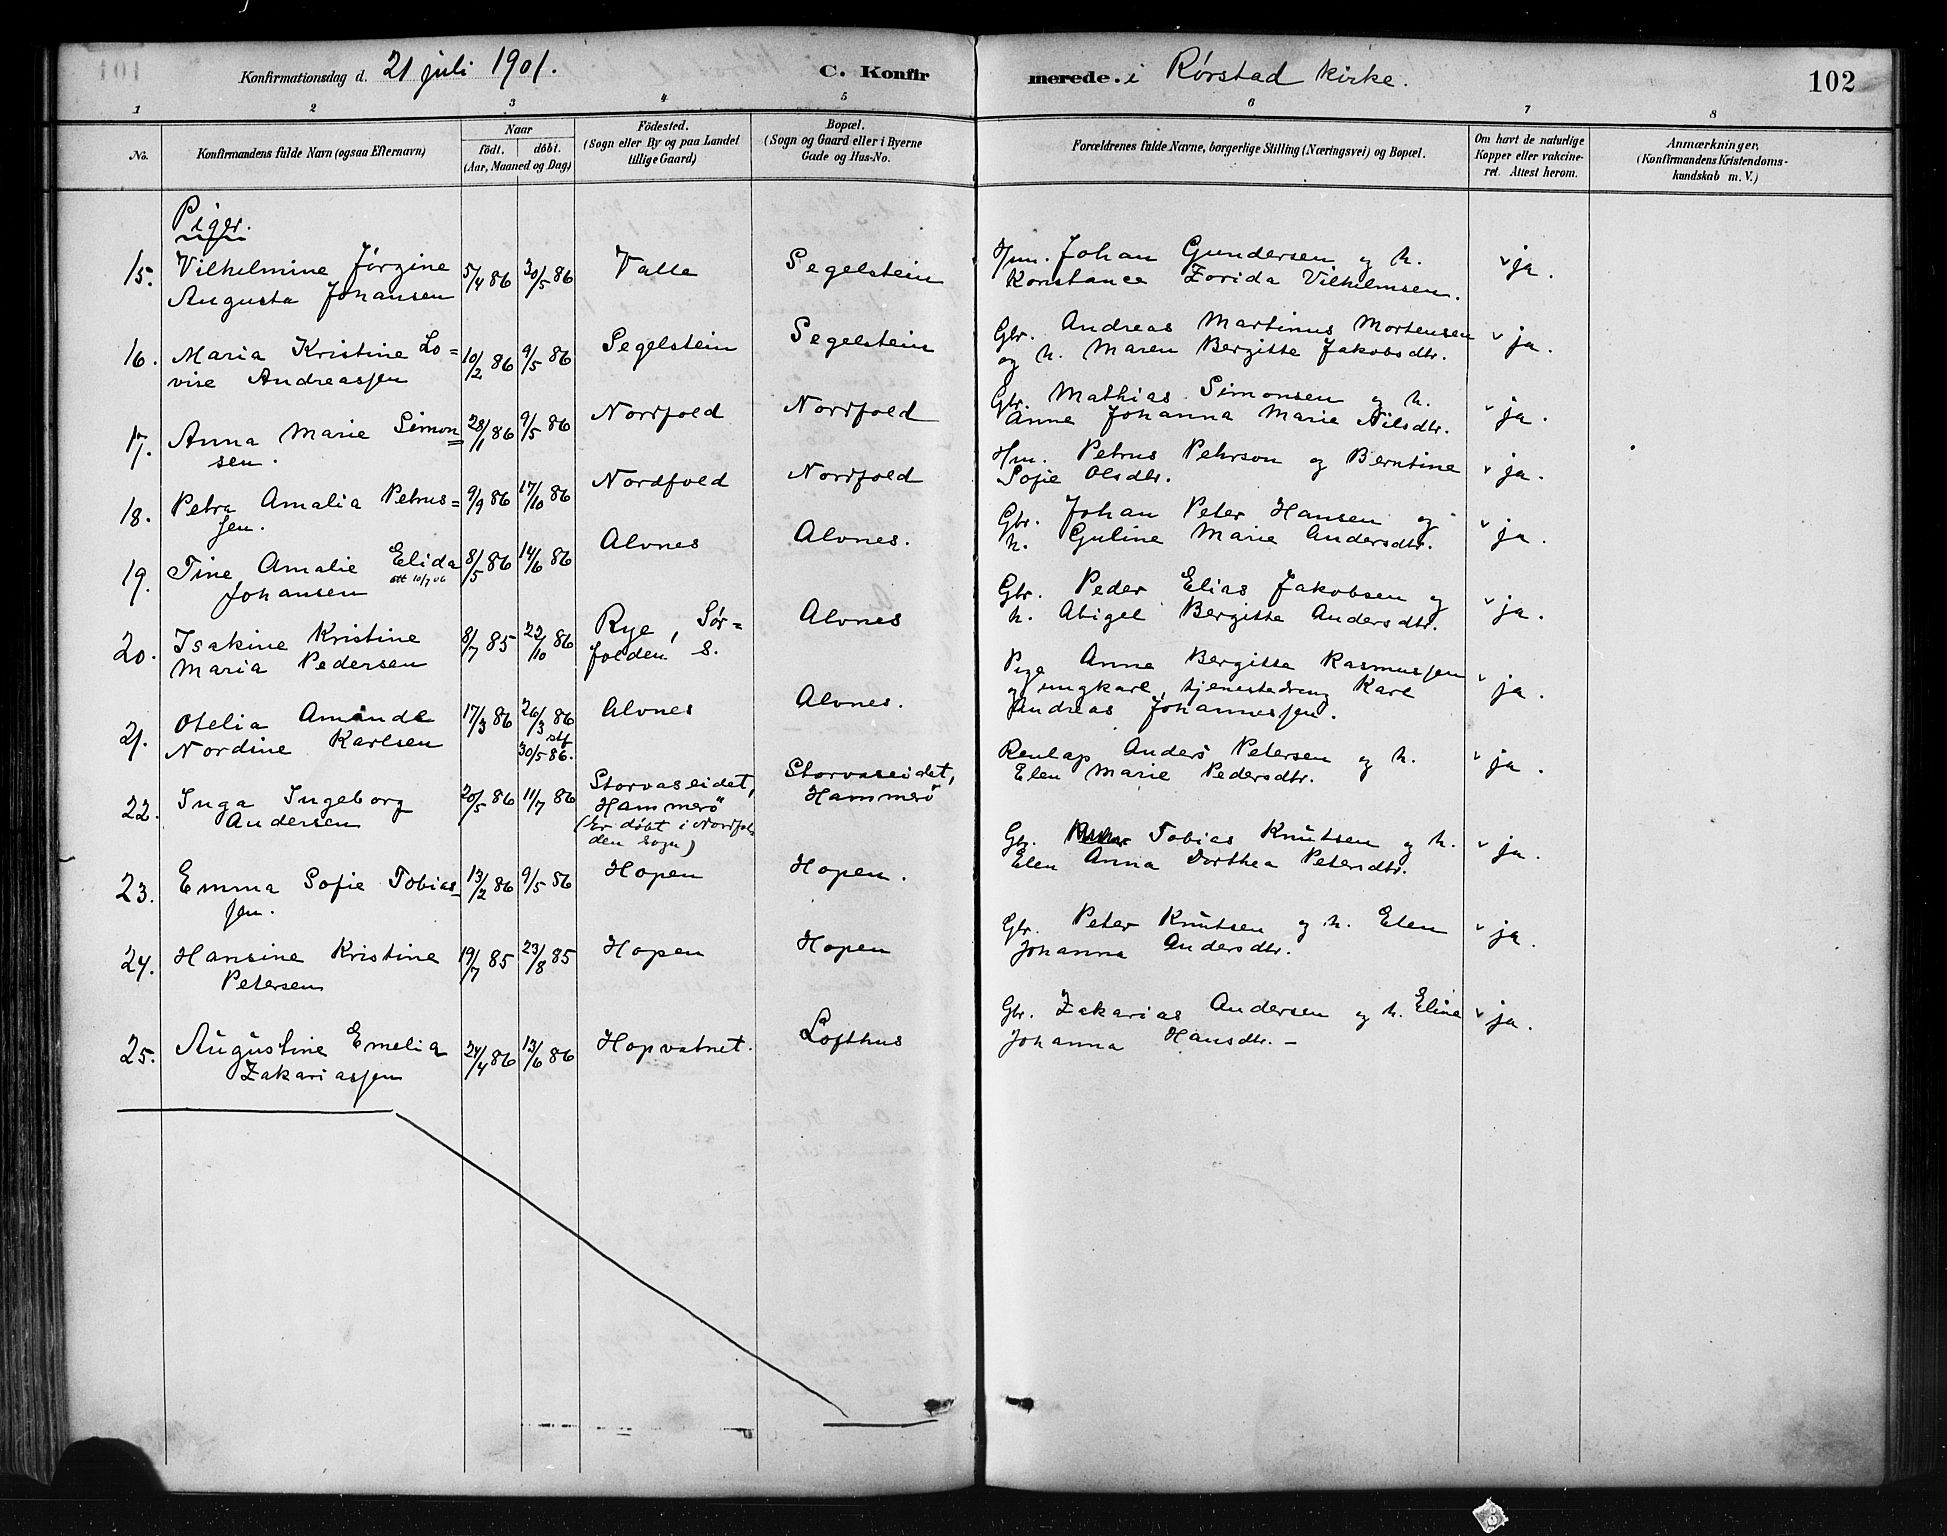 Konfirmationsdag d. 21 juli 1901. C. Konfirmerede. i Rørstad kirke. 102
1 2 3 4 5 6 7 8
No.
Konfirmandens fulde Navn (ogsaa Efternavn)
Naar
födt. döbt.
(Aar, Maaned og Dag)
Födested.
(Sogn eller By og paa Landet
tillige Gaard)
Bopæl.
(Sogn og Gaard eller i Byerne
Gade og Hus-No.
Forældrenes fulde Navne, borgerlige Stilling (Næringsvei) og Bopæl.
Om havt de naturlige
Kopper eller vakcine-
ret. Attest herom.
Anmærkninger,
(Konfirmandens Kristendoms-
kundskab m. V.)
Piger.
15. Vilhelmine Jörgine 5/4 86 30/5 86 Valle Segelstein Hm. Johan Gundersen og h. ja.
Augusta Johansen Konstance Zorida Vilhelmsen.
16. Maria Kristine Lo= 10/2 86 9/5 86 Segelstein Segelstein Gbr. Andreas Martinus Mortensen ja.
vise Andreassen og h. Maren Bergitte Jakobsdtr.
17. Anna Marie Simon= 28/1 86 9/5 86 Nordfold Nordfold Gbr. Mathias Simonsen og h. ja.
sen. Anne Johanna Marie Nilsdtr.
18. Petra Amalia Petrus= 9/9 86 17/10 86 Nordfold Nordfold Hm. Petrus Pehrson og Berntine ja.
sen. Sofie Olsdtr.
19. Tine Amalie Elida 8/5 86 14/6 86 Alvnes Alvnes. Gbr. Johan Peter Hansen og ja.
Johansen att 10/7 06 h. Guline Marie Andersdtr.
20. Isakine Kristine 8/7 85 22/10 86 Rye, Sör= Alvnes Gbr. Peder Elias Jakobsen og ja.
Maria Pedersen folden s. h. Abigel Bergitte Andersdtr.
21. Otelia Amande 17/3 86 26/3 86 Alvnes Alvnes. Pige Anne Bergitte Rasmussen ja.
Nordine Karlsen stf 30/5 86. og ungkarl, tjenestedreng Karl
Andreas Johannessen.
22. Inga Ingeborg 20/5 86 11/7 86 Storvaseidet, Storvaseidet, Renlap Anders Petersen og h. ja.
Andersen Hammerö Hammerö Elen Marie Pedersdtr.
(Er döbt i Nordfol
den sogn)
23. Emma Sofie Tobias= 13/2 86 9/5 86 Hopen Hopen. Gbr. Tobias Knutsen og h. ja.
sen. Elen Anna Dorthea Petersdtr.
24. Hansine Kristine 19/7 85 23/8 85 Hopen Hopen Gbr. Peter Knutsen og h. Elen ja.
Petersen Johanna Andersdtr.
25. Augustine Emelia 24/4 86 13/6 86 Hopvatnet. Lofthus Gbr. Zakarias Andersen og h. Eline ja.
Zakariassen Johanna Hansdtr. -